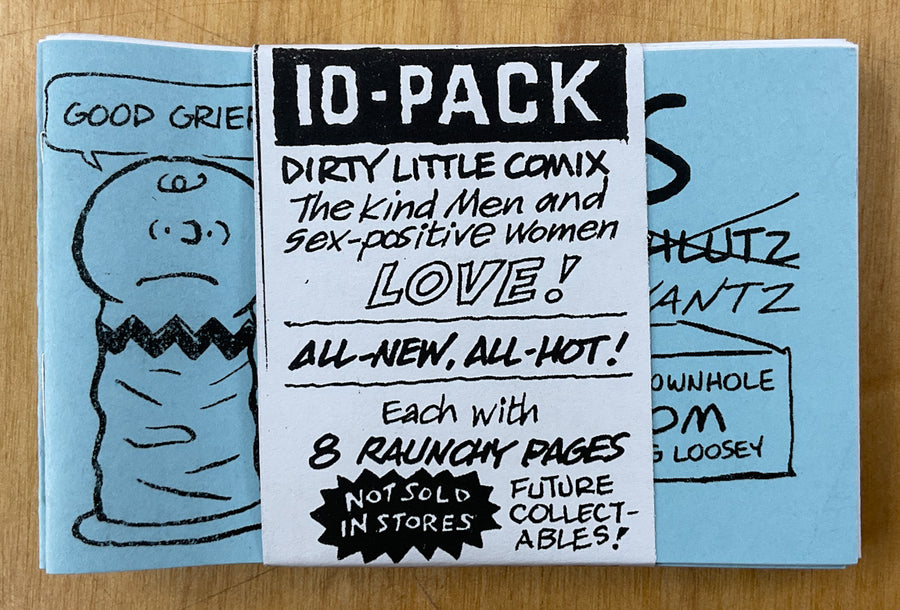 GOOD GRIEF
10-PACK
DIRTY LITTLE COMIX
The Kind Men and
Sex-positive Women
LOVE!
ALL-NEW, ALL-HOT!
Each with
8 RAUNCHY PAGES
NOT SOLD
IN STORES
FUTURE
COLLECT-
ABLES!
S
HLUTZ
VANTZ
OWNHOLE
OM
G LOOSEY